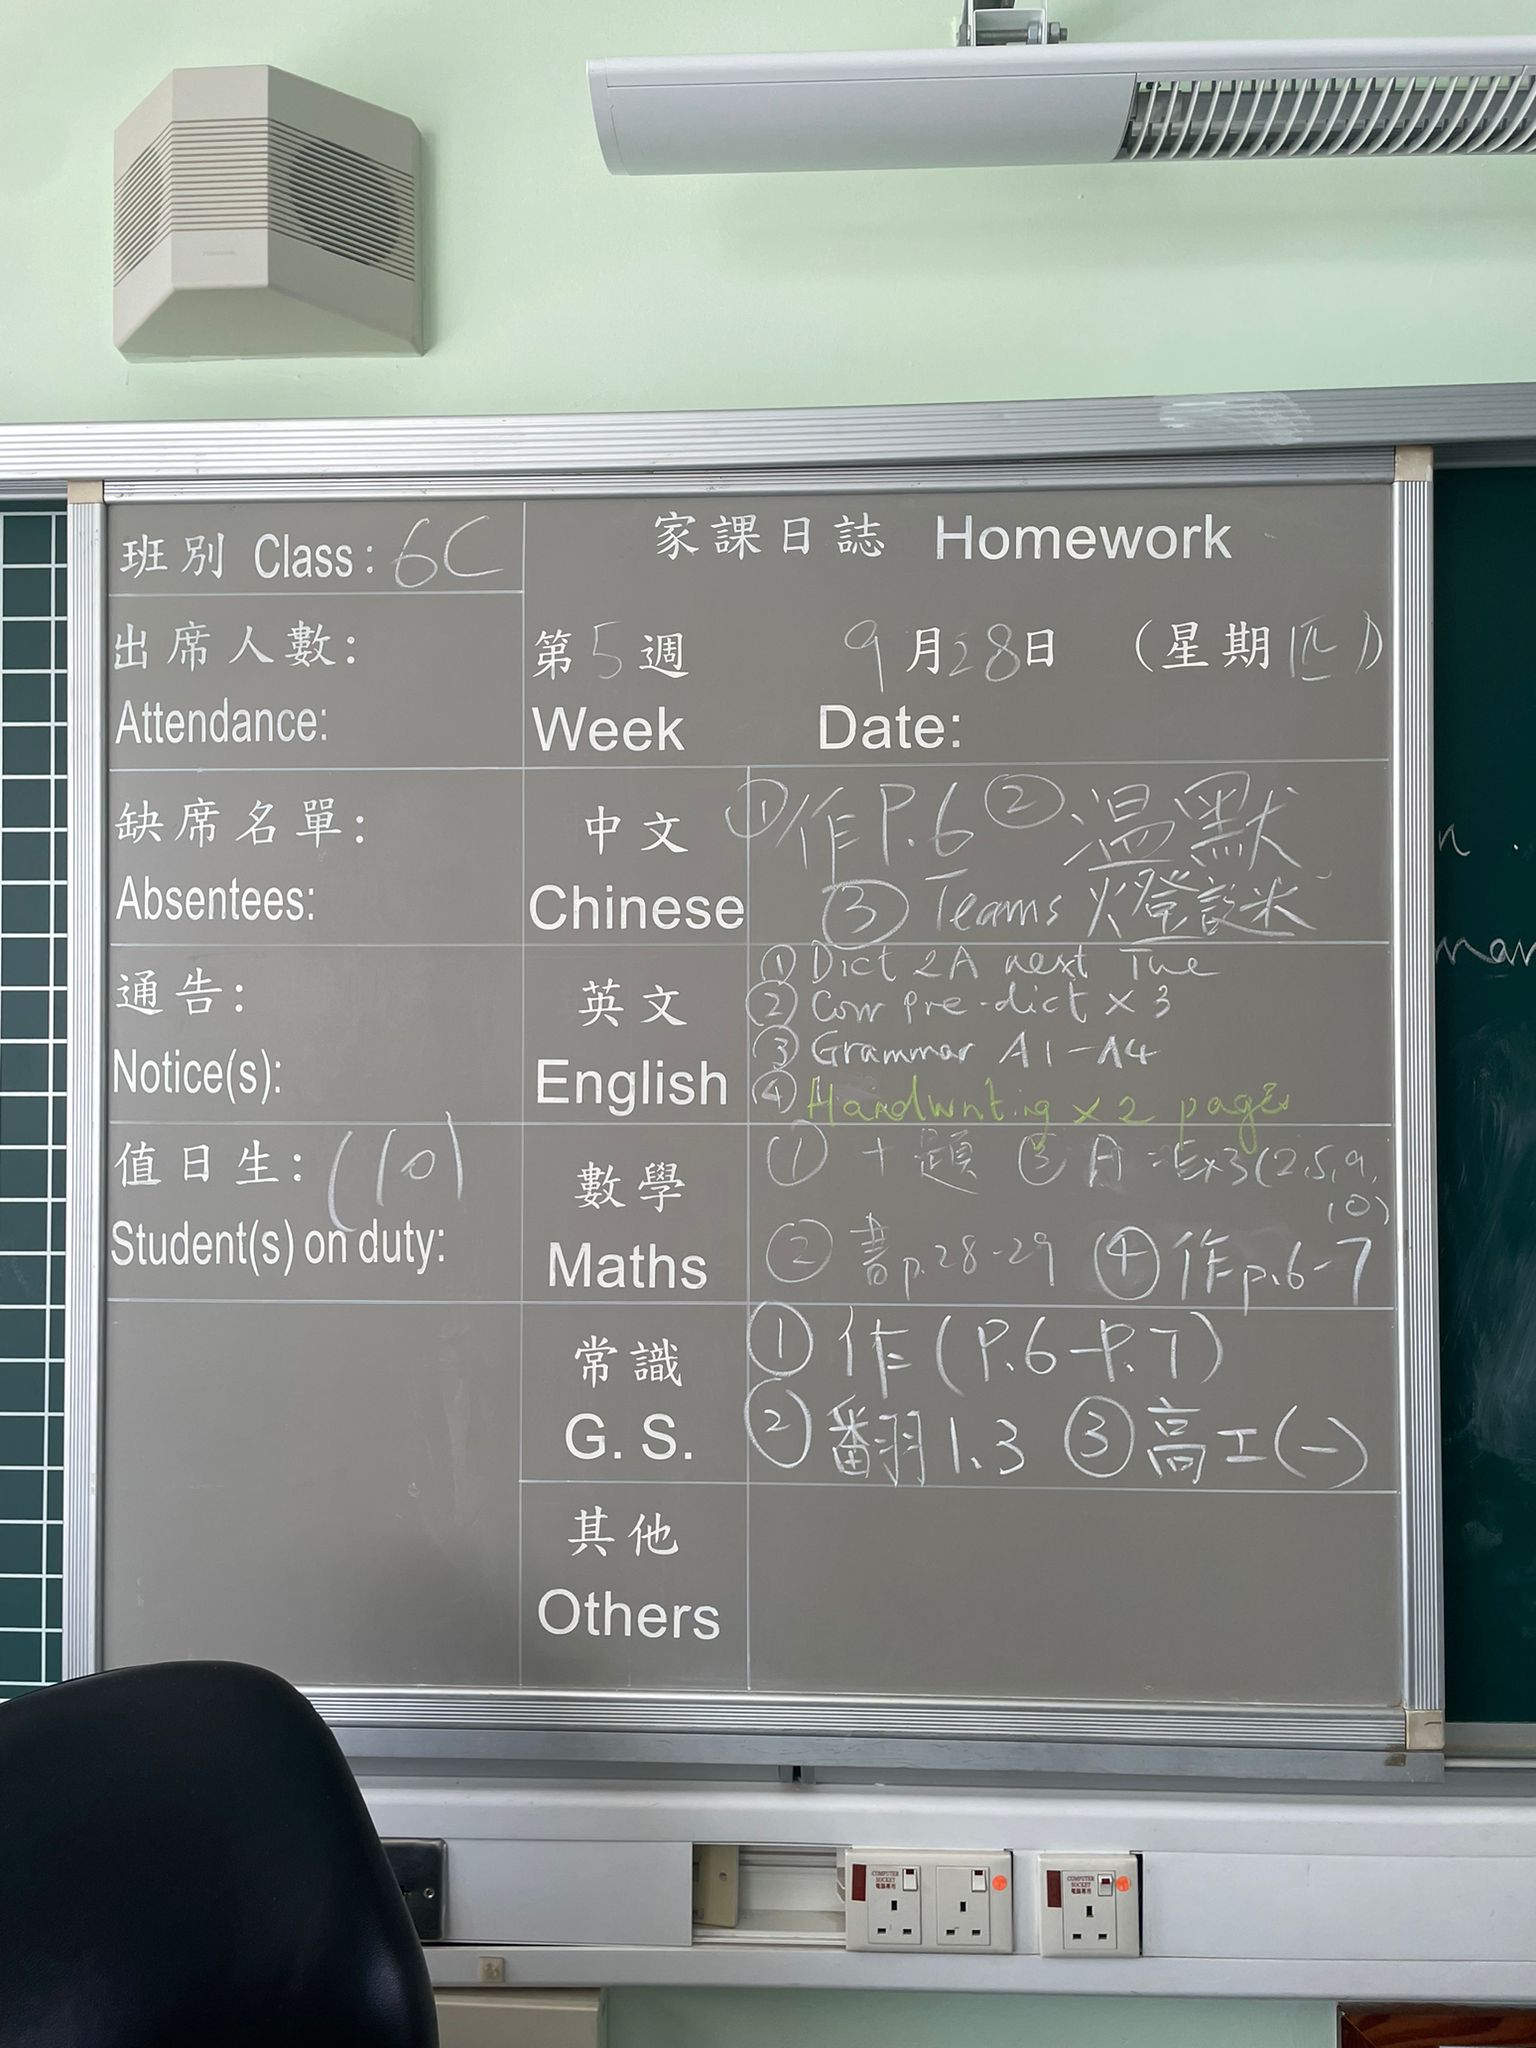 班別 Class: 6C
家課日誌 Homework
出席人數:
Attendance:
第5週 9月28日 (星期四)
Week Date:
缺席名單:
Absentees:
中文
Chinese
① 作P.6 ② 温默
③ Teams 燈謎
通告:
Notice(s):
英文
English
① Dict 2A next Tue
② Corr pre-dict x 3
③ Grammar A1-A4
④ Handwriting x 2 pages
值日生: (10)
Student(s) on duty:
數學
Maths
① 十題 ③ x3 (2,5,9,
10)
② 書p.28-29 ④ 作p.6-7
常識
G. S.
① 作 (P.6-P.7)
② 翻1.3 ③ 高工(一)
其他
Others
COMPUTER
SOCKET
電腦專用
COMPUTER
SOCKET
電腦專用